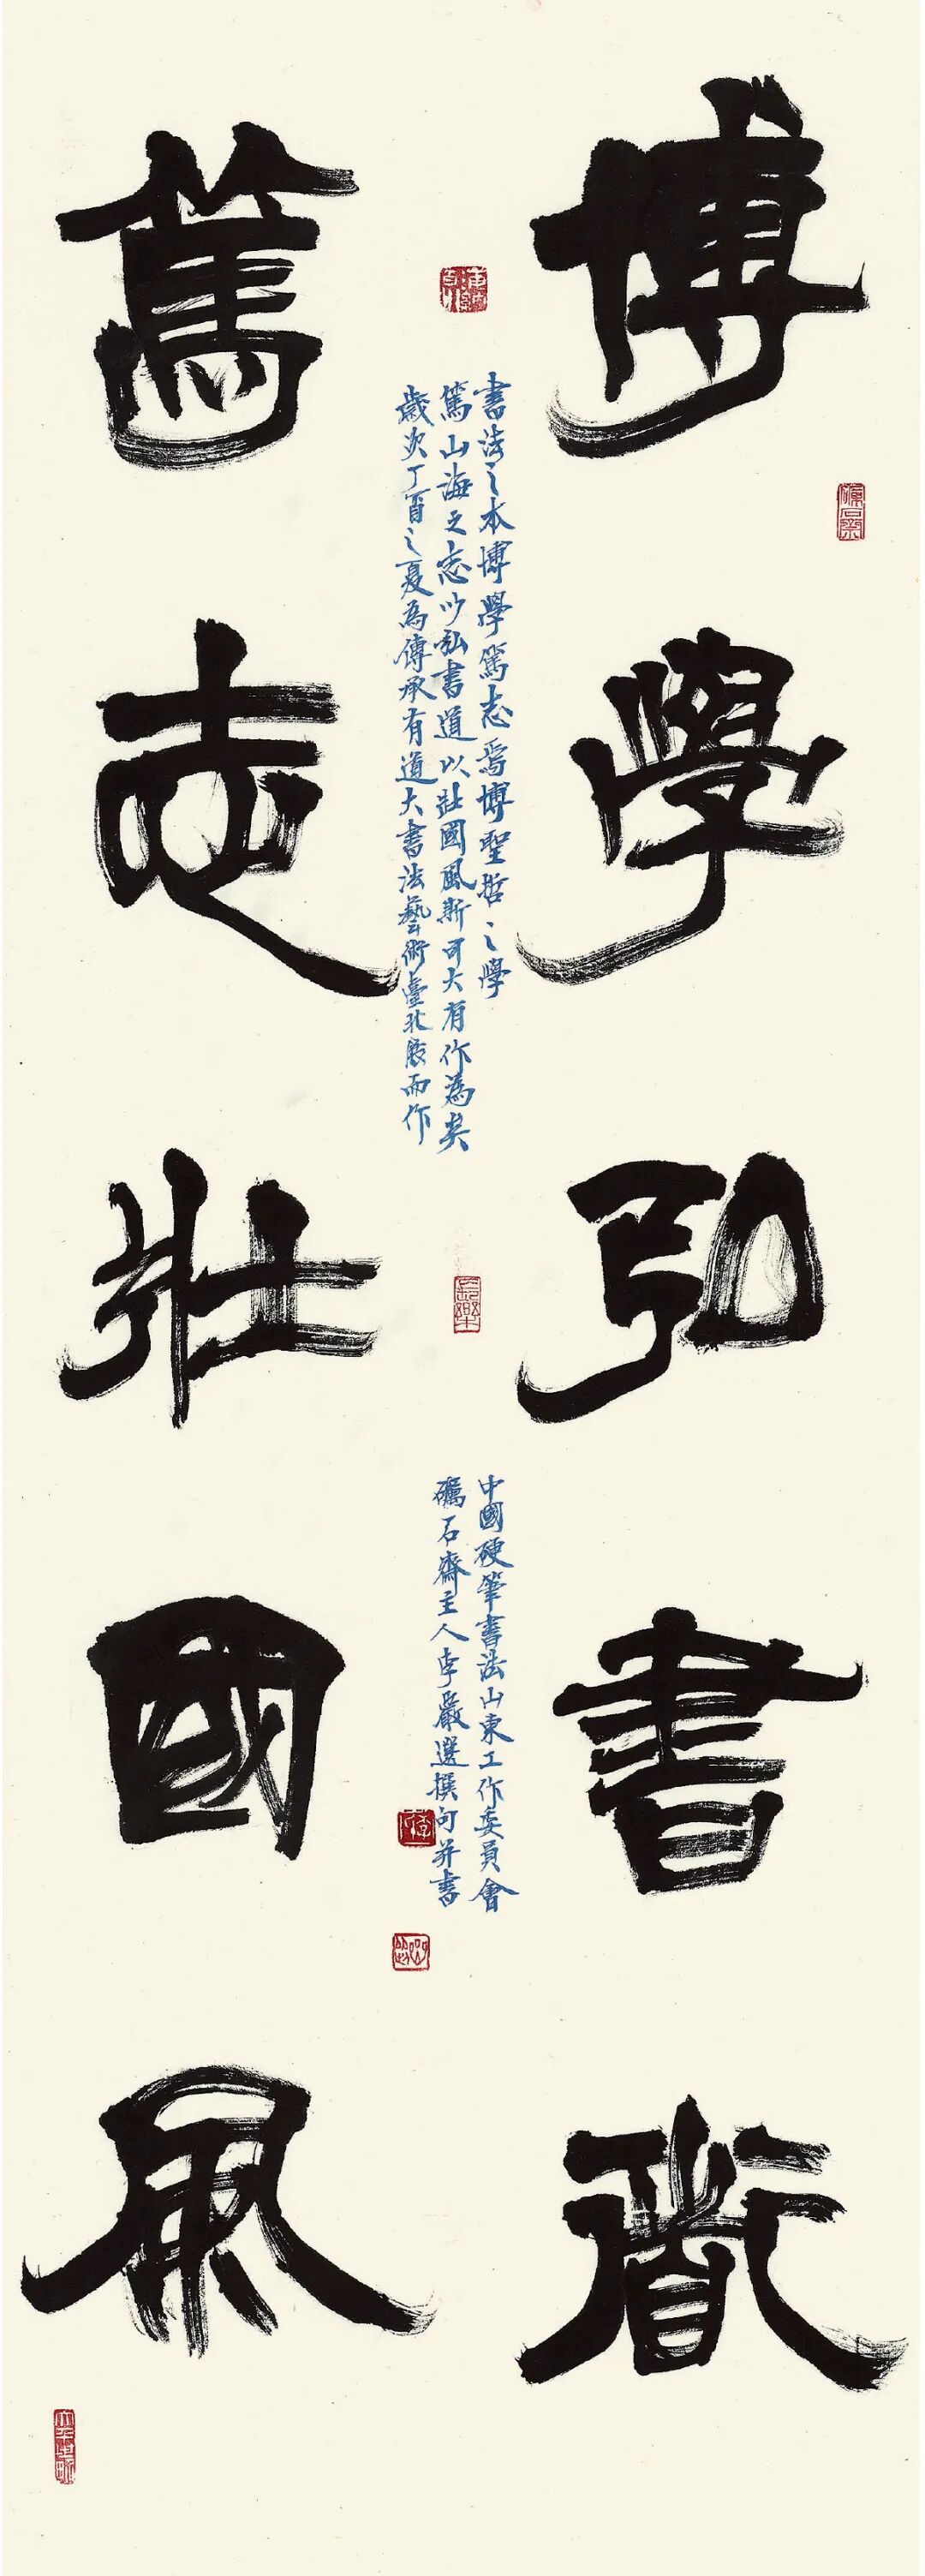 博學弘書道
篤志壯國風
書法之本博學篤志焉博聖哲之學
篤山海之志以弘書道以壯國風斯可大有作為矣
歲次丁酉之夏為傳承有道大書法藝術臺北展而作
中國硬筆書法山東工作委員會
礪石齋主人李嚴選撰句并書
礪石齋
長樂